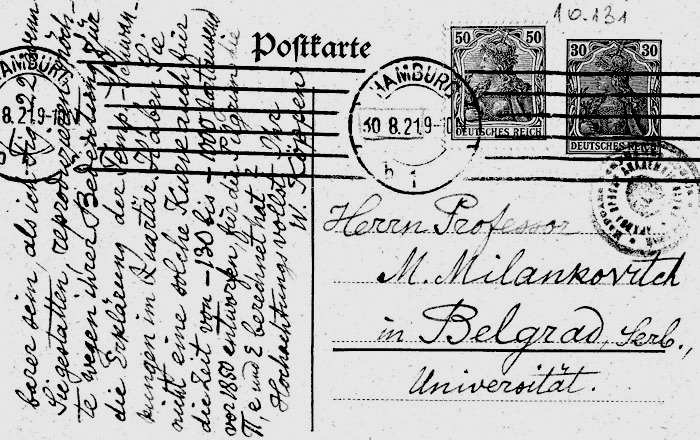 10.131
Postkarte
HAMBURG
8.21.9-10
HAMBURG
30.8.21.9-10
b 1
50 50
DEUTSCHES REICH
30 30
DEUTSCHES REICH
Herrn Professor
M. Milankovitch
in Belgrad, Serb.,
Universität.
barer sein, als ich Fig. 22 wenn
Sie gestatten, reproduzieren möch-
te wegen ihrer Bedeutung für
die Erklärung der Temp. Schwan-
kungen im Quartär. Haben Sie
nicht eine solche Kurve auch für
die Zeit von -130 bis -1000 Jahrtausend
vor 1850 entworfen, für die Pilgrim die
Π, e und ε berechnet hat?
Hochachtungsvollst Ihr
W. Köppen